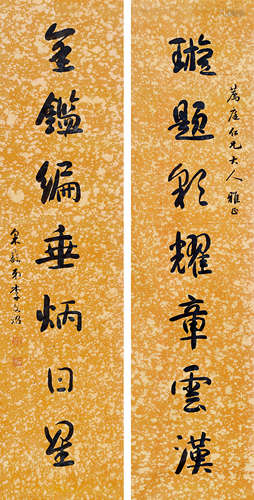 庭仁兄大人雅正
璇題彩耀章雲漢
金鑑編垂炳日星
弟李